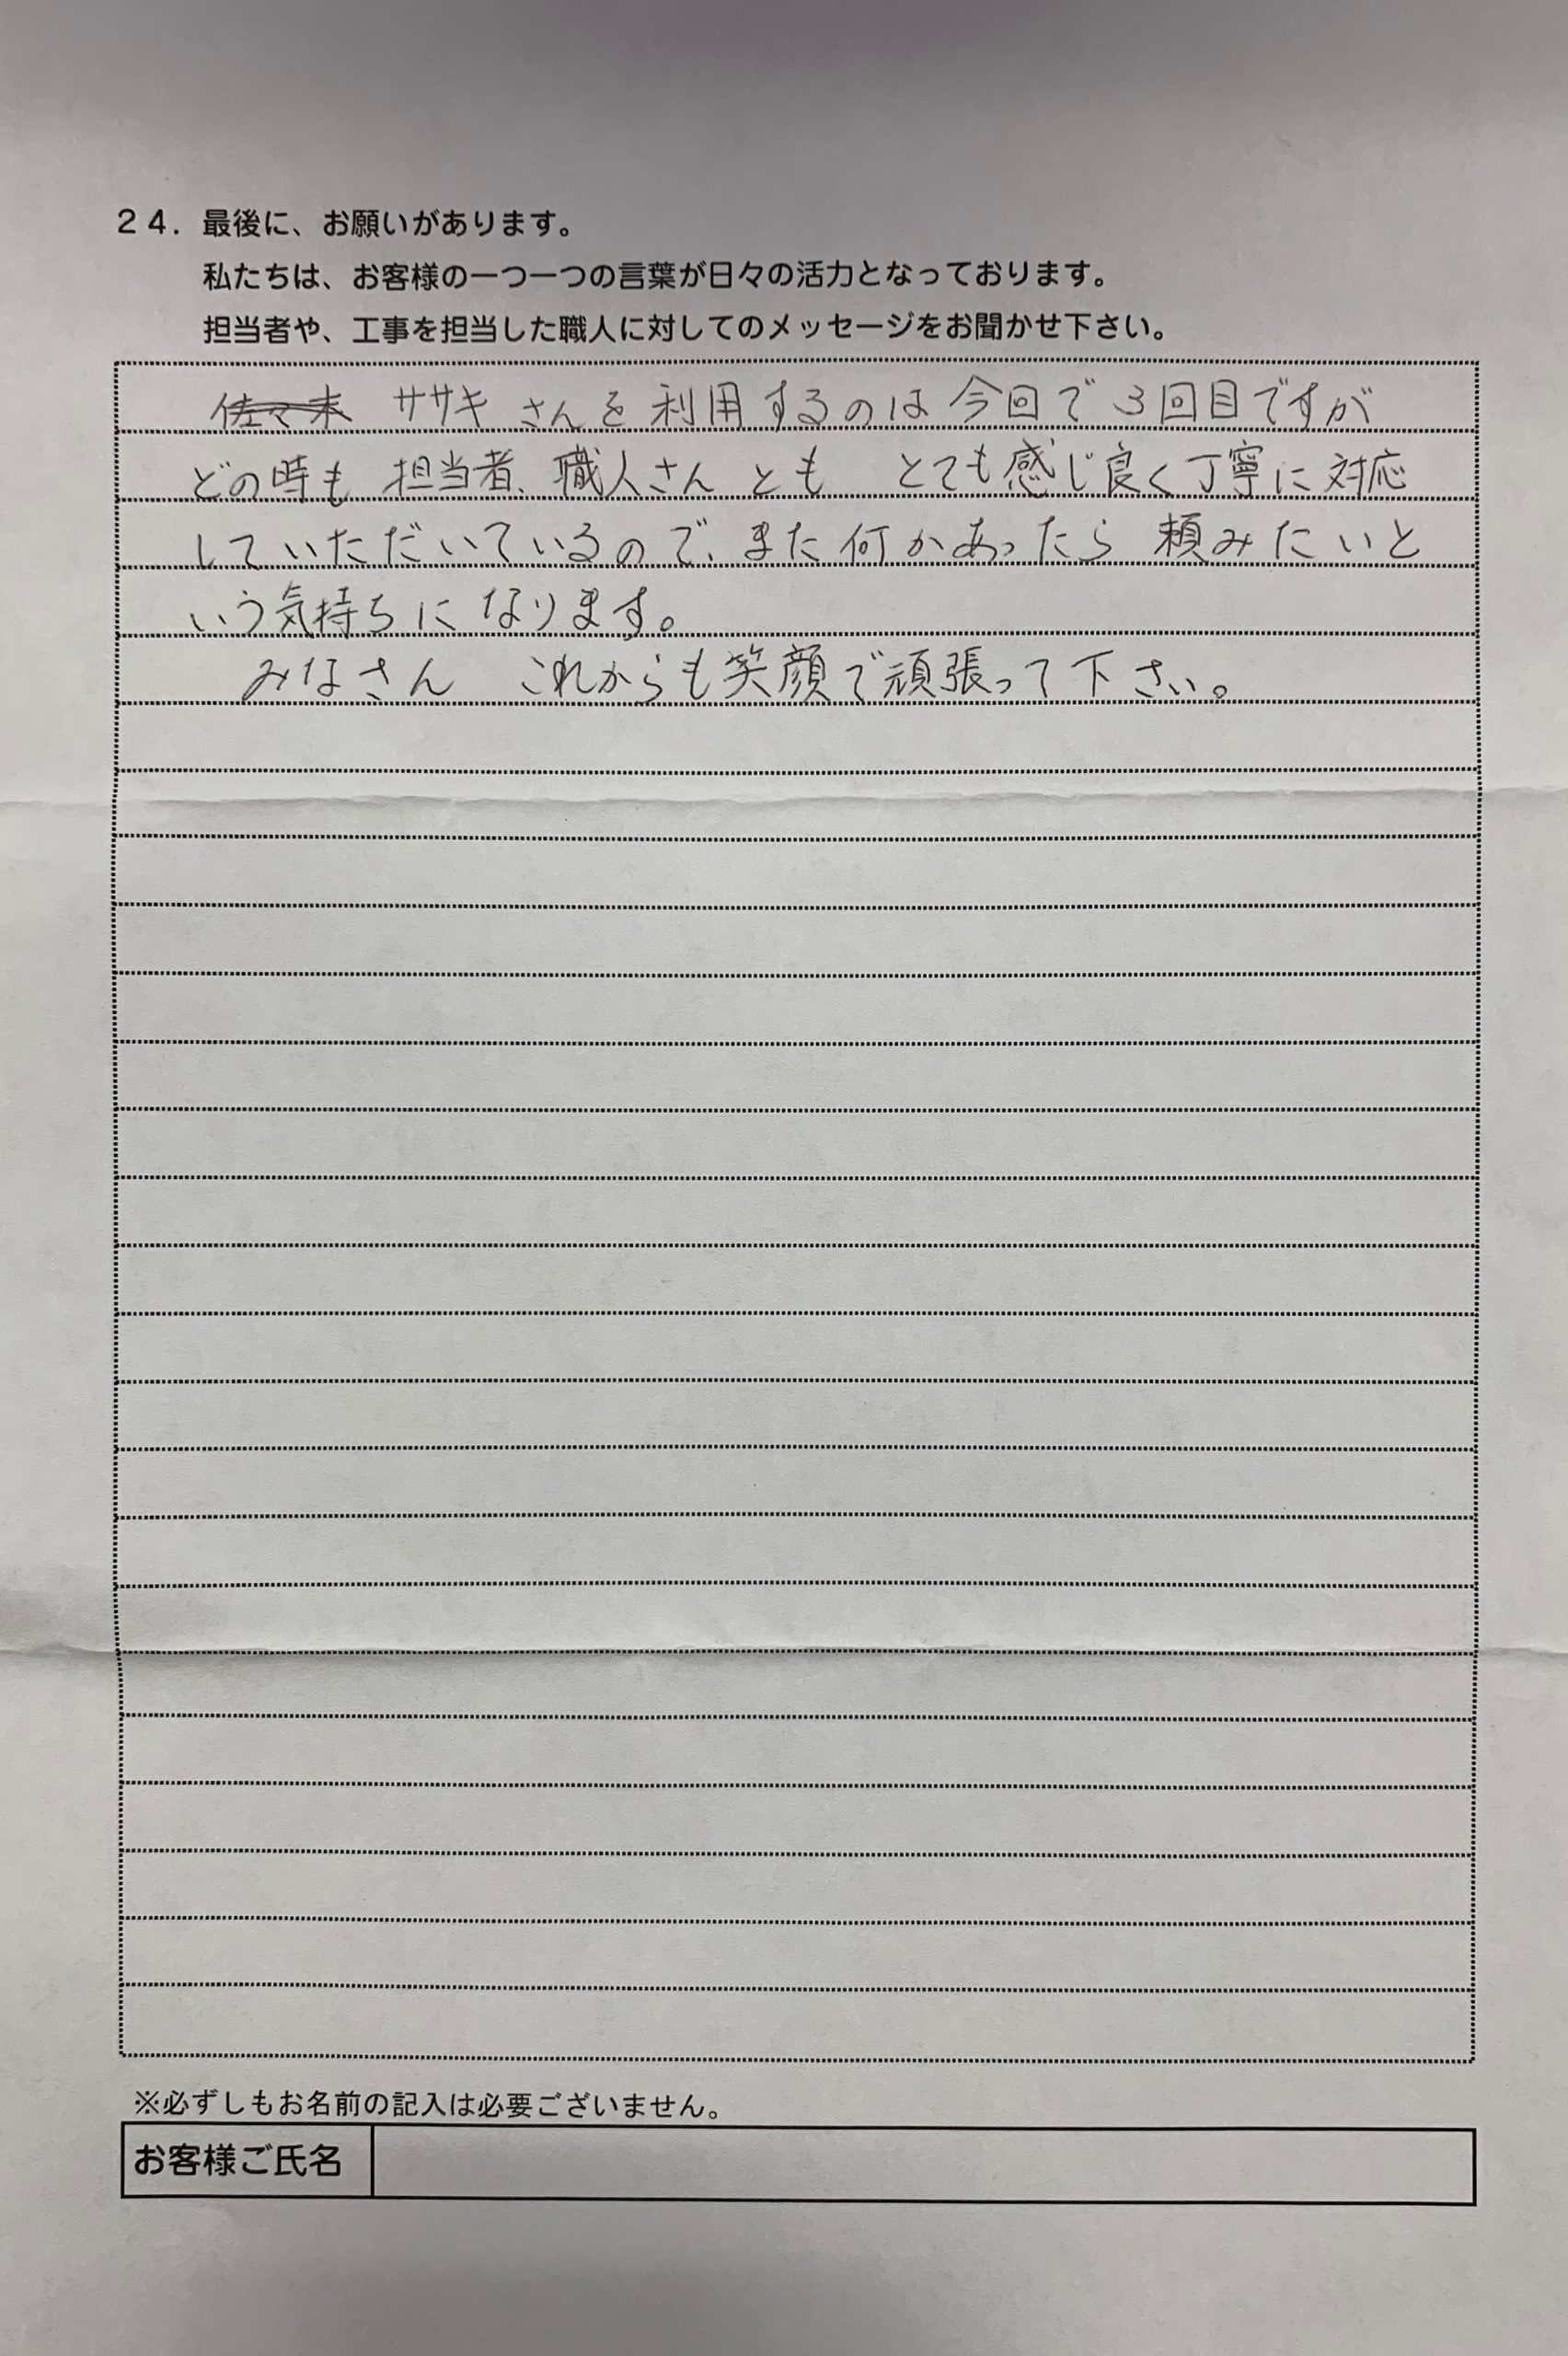 ２４．最後に、お願いがあります。
私たちは、お客様の一つ一つの言葉が日々の活力となっております。
担当者や、工事を担当した職人に対してのメッセージをお聞かせ下さい。
佐々木 ササキさんを利用するのは今回で3回目ですが
どの時も 担当者、職人さんとも とても感じ良く丁寧に対応
していただいているので、また何かあったら 頼みたいと
いう気持ちになります。
みなさん これからも笑顔で頑張って下さい。
※必ずしもお名前の記入は必要ございません。
お客様ご氏名